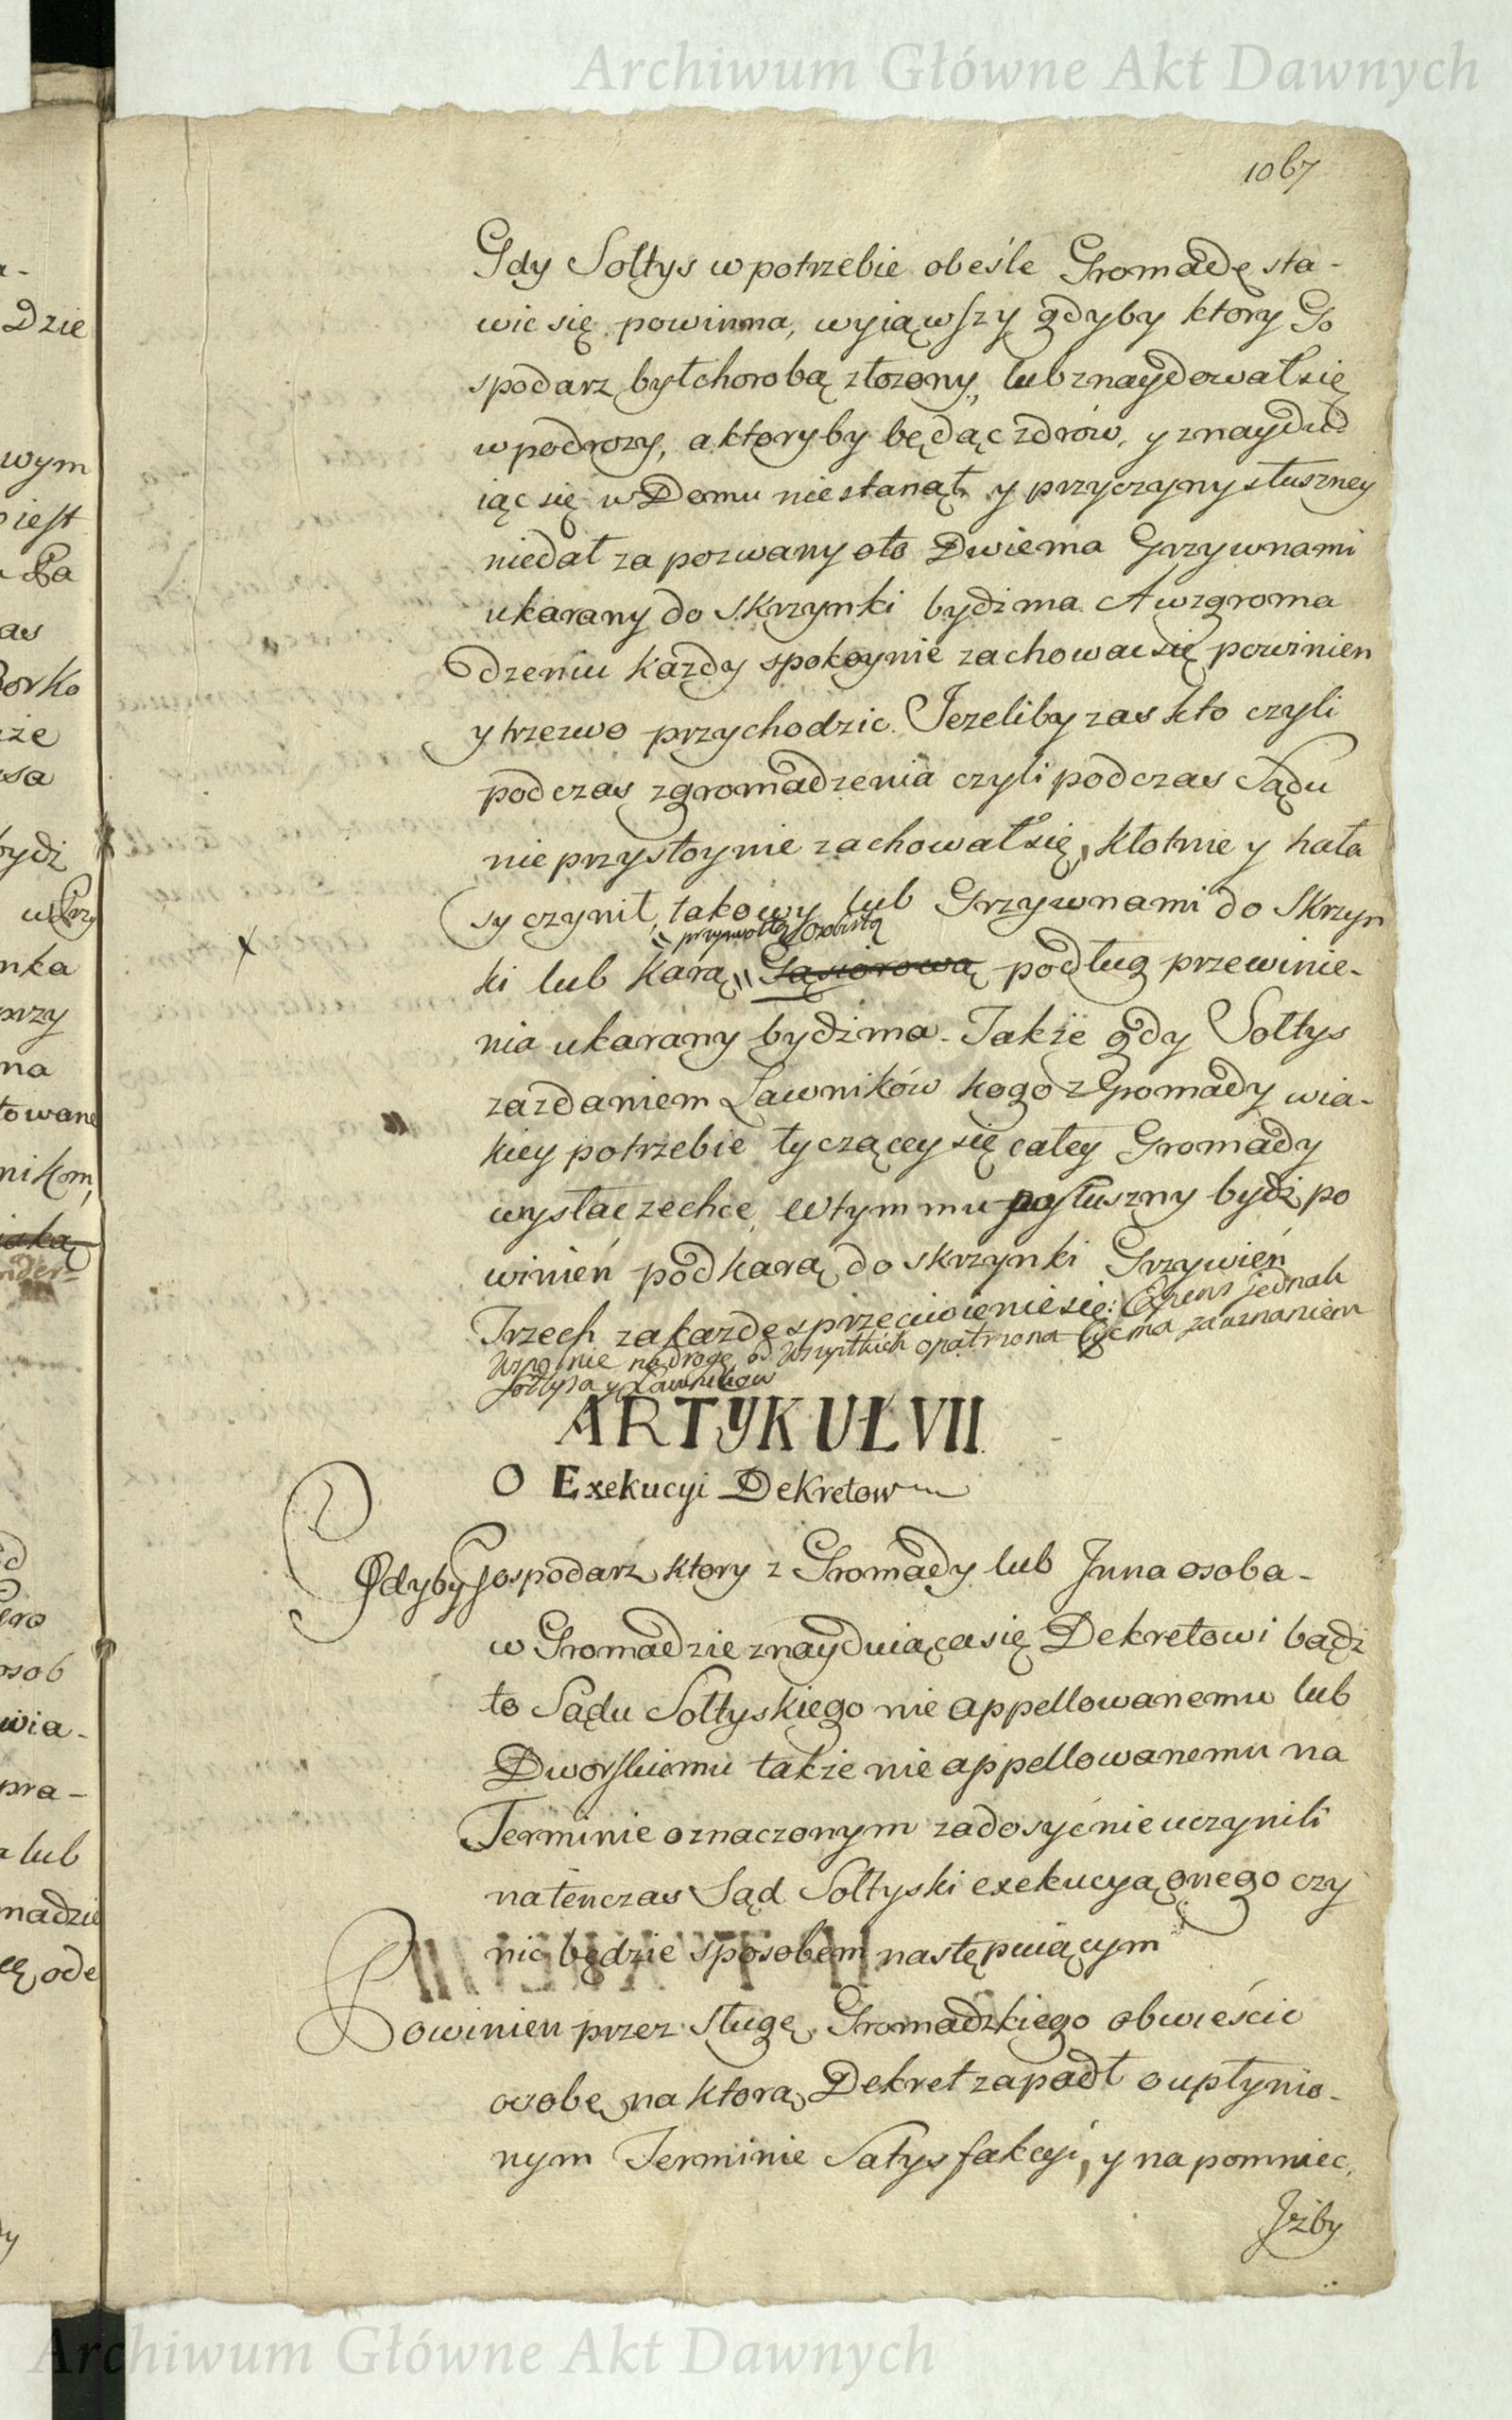 Archiwum Główne Akt Dawnych
1067
Gdy Sołtys w potrzebie obeśle Gromadę sta-
wic się powinna, wyiąwszy gdyby ktory Go
spodarz był chorobą złozony, lub znaydował się
w podrozy, a ktoryby będąc zdrów, y znaydu
iąc się w Domu nie stanął y przyczyny słuszney
niedał zapozwany oto Dwiema Grzywnami
ukarany do Skrzynki bydz ma. A w zgroma
dzeniu kazdy spokoynie zachowac się powinien
y trzezwo przychodzic. Jezeliby zas kto czyli
podczas zgromadzenia czyli podczas Sądu
nieprzystoynie zachował się, kłotnie y hała
sy czynił, takowy lub Grzywnami do Skrzyn
przyzwoitą osobistą
ki lub Karą Gąsiorową podług przewinie-
nia ukarany bydz ma. Także gdy Sołtys
za zdaniem Ławników kogo z Gromady w ia-
kiey potrzebie tyczącey się całey Gromady
wysłac zechce, w tym mu posłuszny bydź po
winień pod karą do skrzynki Grzywień
Trzech za kazde sprzeciwienie się: Expens jednak
wspolnie na drogę od wszystkich opatrzona byc ma za uznaniem
Sołtysa y Ławnikow
ARTYKUŁ VII
O Exekucyi Dekretow
Gdyby Gospodarz ktory z Gromady lub Inna osoba-
w Gromadzie znayduiąca się Dekretowi bądź
to Sądu Sołtyskiego nie appellowanemu lub
Dworskiemu także nie appellowanemu na
Terminie oznaczonym zadosyć nie uczynili
natenczas Sąd Sołtyski exekucyą onego czy
nic będzie sposobem następuiącym
Powinien przez Sługę Gromadzkiego obwieścic
osobę na ktorą Dekret zapadł o upłynio-
nym Terminie Satysfakcyi, y napomniec,
Jżby
Archiwum Główne Akt Dawnych